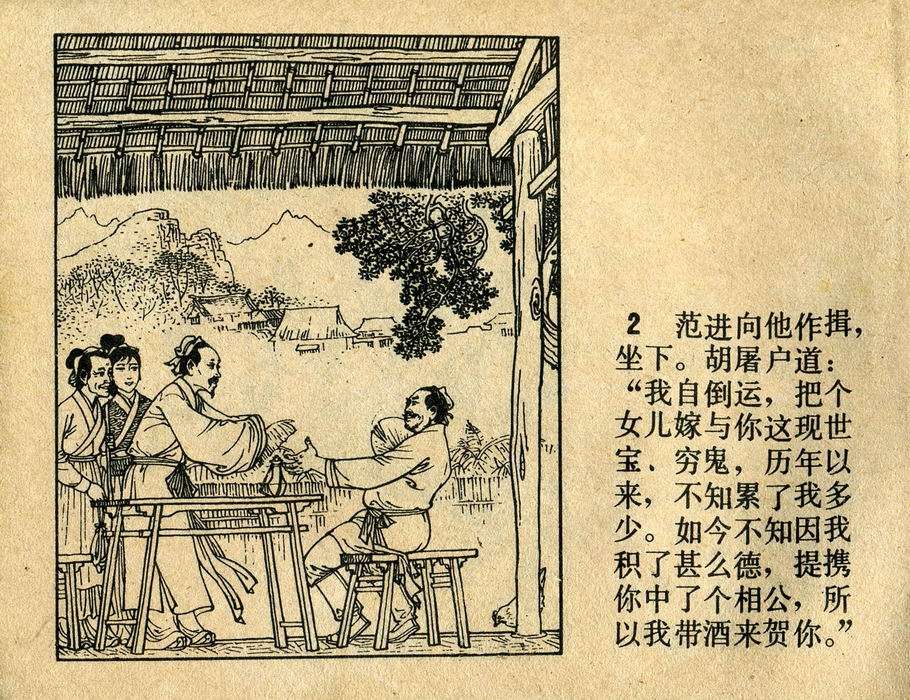 2 范进向他作揖，
坐下。胡屠户道：
“我自倒运，把个
女儿嫁与你这现世
宝、穷鬼，历年以
来，不知累了我多
少。如今不知因我
积了甚么德，提携
你中了个相公，所
以我带酒来贺你。”